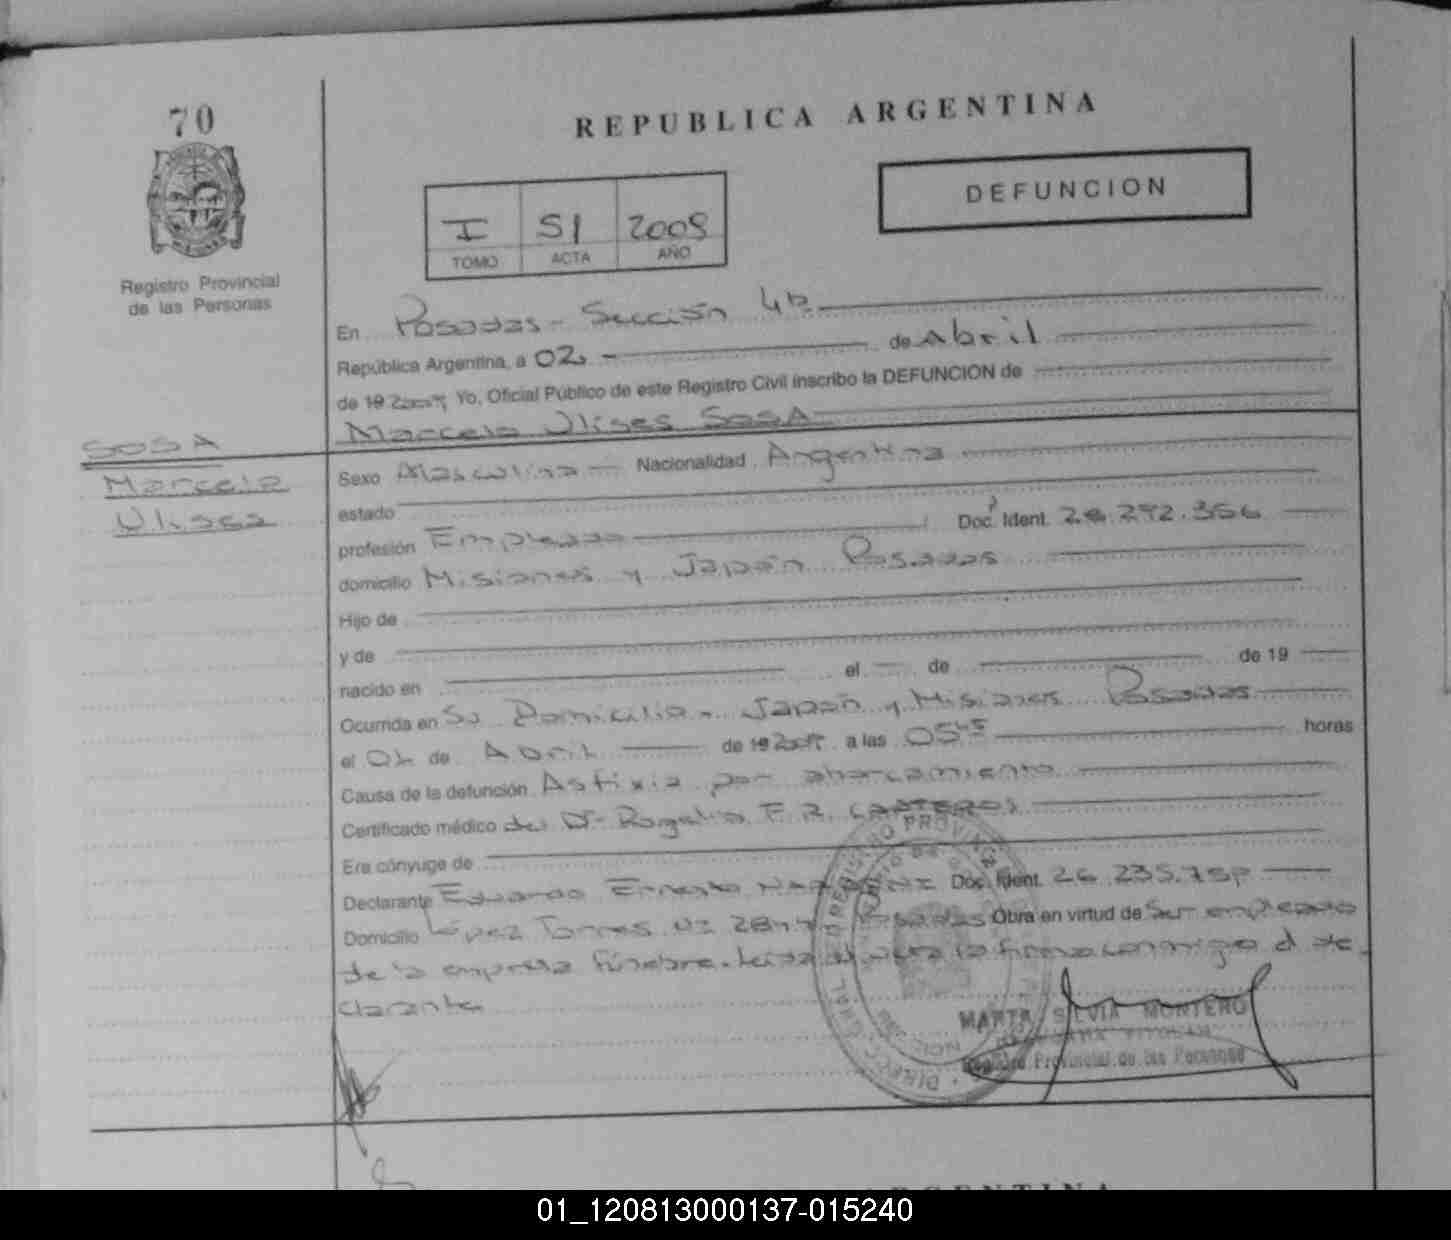 70
REPUBLICA ARGENTINA
DEFUNCION
I 51 2009
TOMO ACTA AÑO
Registro Provincial
de las Personas
En Posadas - Sección 4ta
República Argentina, a 02 de Abril
de 19 2009 Yo, Oficial Público de este Registro Civil inscribo la DEFUNCION de
Marcelo Ulises SOSA
SOSA
Marcelo
Ulises
Sexo Masculino Nacionalidad Argentina
estado
profesión Empleado Doc. Ident. 28.292.356
domicilio Misiones y Japón Posadas
Hijo de
y de
nacido en el de de 19
Ocurrida en Su Domicilio - Japón y Misiones Posadas
el 02 de Abril de 19 2009 a las 05 45 horas
Causa de la defunción Asfixia por ahorcamiento
Certificado médico del Dr Rogelio F. R. CANTEROS
Era cónyuge de
Declarante Eduardo Ernesto Doc. Ident. 26.235.
Domicilio López Torres Nº Posadas Obra en virtud de Ser empleado
de la empresa fúnebre. Leída el acta la firma conmigo el de-
clarante
MARTA SILVIA MONTERO
Registro Provincial de las Personas
ARGENTINA
01_120813000137-015240